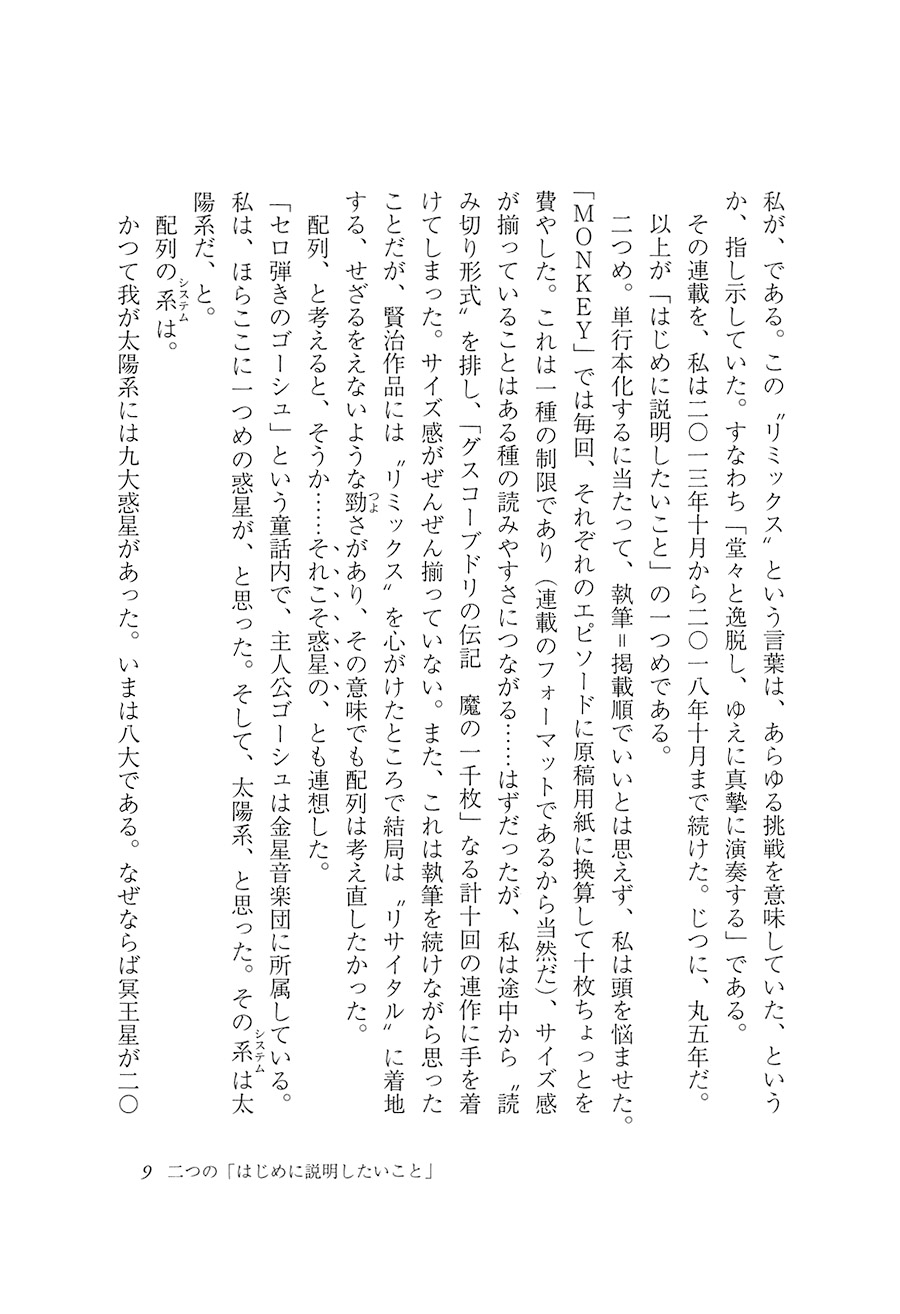 私が、である。この〝リミックス〟という言葉は、あらゆる挑戦を意味していた、という
か、指し示していた。すなわち「堂々と逸脱し、ゆえに真摯に演奏する」である。
その連載を、私は二〇一三年十月から二〇一八年十月まで続けた。じつに、丸五年だ。
以上が「はじめに説明したいこと」の一つめである。
二つめ。単行本化するに当たって、執筆=掲載順でいいとは思えず、私は頭を悩ませた。
「MONKEY」では毎回、それぞれのエピソードに原稿用紙に換算して十枚ちょっとを
費やした。これは一種の制限であり(連載のフォーマットであるから当然だ)、サイズ感
が揃っていることはある種の読みやすさにつながる……はずだったが、私は途中から〝読
み切り形式〟を排し、「グスコーブドリの伝記　魔の一千枚」なる計十回の連作に手を着
けてしまった。サイズ感がぜんぜん揃っていない。また、これは執筆を続けながら思った
ことだが、賢治作品には〝リミックス〟を心がけたところで結局は〝リサイタル〟に着地
する、せざるをえないような勁つよさがあり、その意味でも配列は考え直したかった。
配列、と考えると、そうか……それこそ惑星の、とも連想した。
「セロ弾きのゴーシュ」という童話内で、主人公ゴーシュは金星音楽団に所属している。
私は、ほらここに一つめの惑星が、と思った。そして、太陽系、と思った。その系システムは太
陽系だ、と。
配列の系システムは。
かつて我が太陽系には九大惑星があった。いまは八大である。なぜならば冥王星が二〇
9 二つの「はじめに説明したいこと」